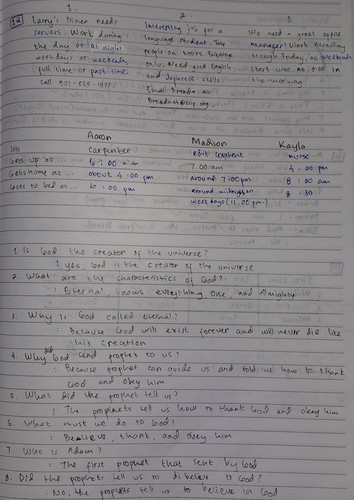 1.
2.
3.
Larry's Diner needs
servers. Work during
the day or at night,
weekdays or weekends,
full time or part time.
Call 801-555-1977.
Interesting job for a
language student. Take
people on tours.
only. Need good English
and Japanese skills.
Email Brenda at
We need a great
manager! Work Monday
through Friday, no weekends
Start work at 8:00 in
the morning.
Aaron Madison Kayla
Job carpenter nurse
Gets up at 7:00 am 4:00 pm
Gets home at... about 4:00 pm around 7:00 pm 8:00 am
Goes to bed at... 10:00 pm around midnight 8:30
weekdays (11.00 pm)
1. Is God the creator of the universe?
: yes, God is the creator of the universe
2. What are the characteristics of God?
: Eternal, knows everything, One, and Almighty
3. Why is God called eternal?
: Because God will exist forever and will never die like
this creation
4. Why God send prophet to us?
: Because prophet can guide us and told us how to thank
God and obey him
5. What did the prophet tell us?
: The prophets tell us how to thank God and obey him
6. What must we do to God?
: Believe, thank, and obey him
7. Who is Adam?
: The first prophet that sent by God
8. Did the prophets tell us to disbelieve to God?
: No, the prophets tell us to believe in God